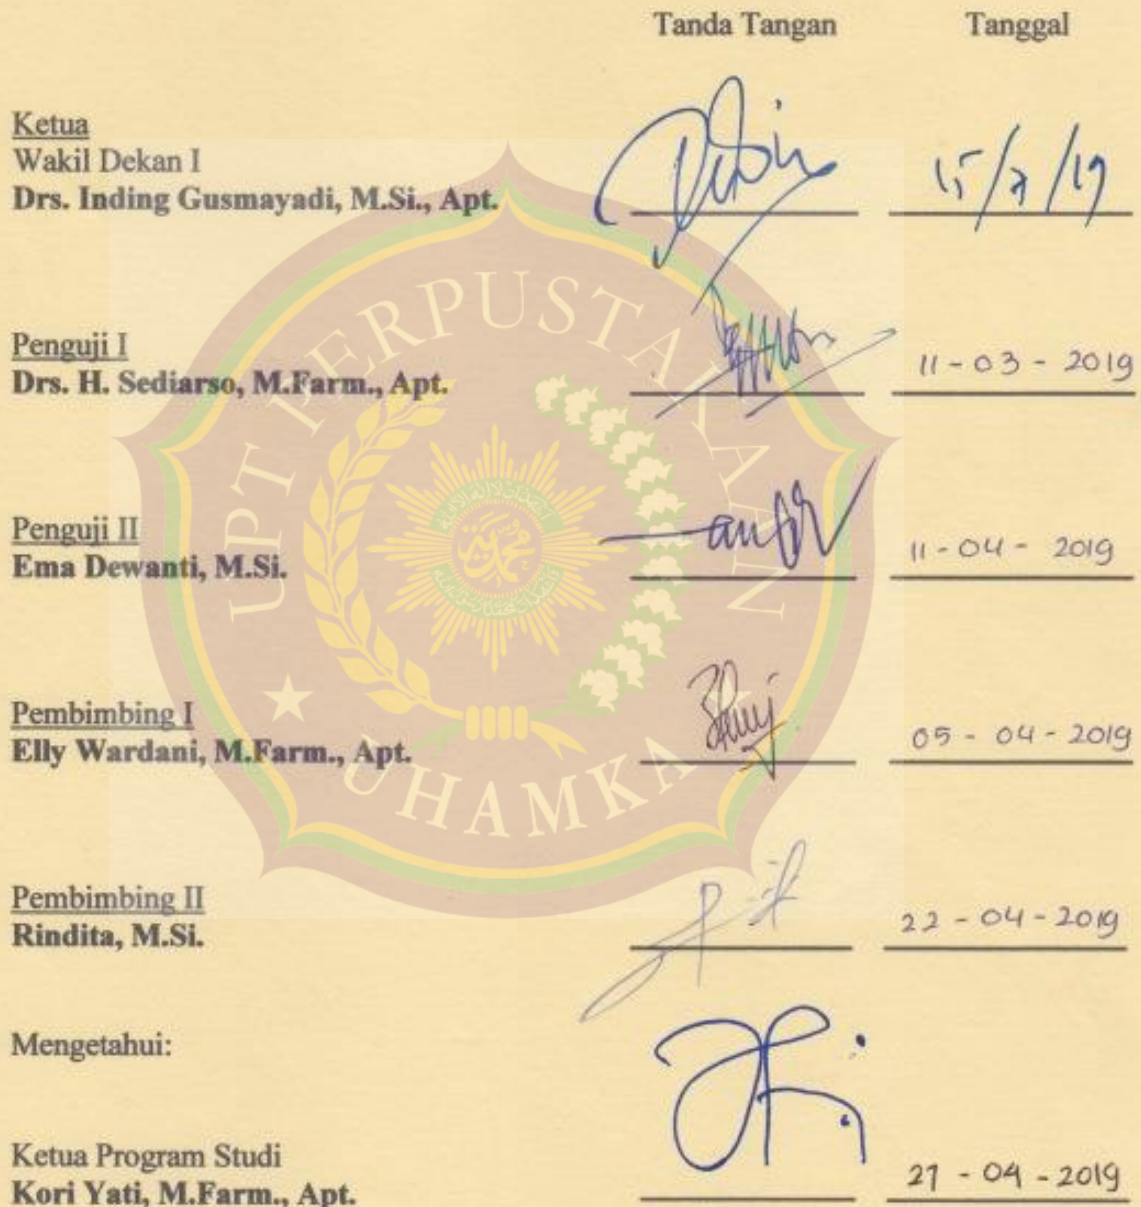 Tanda Tangan Tanggal
Ketua
Wakil Dekan I
Drs. Inding Gusmayadi, M.Si., Apt. 15/7/19
Penguji I
Drs. H. Sediarso, M.Farm., Apt. 11-03-2019
Penguji II
Ema Dewanti, M.Si. 11-04-2019
Pembimbing I
Elly Wardani, M.Farm., Apt. 05-04-2019
Pembimbing II
Rindita, M.Si. 22-04-2019
Mengetahui:
Ketua Program Studi
Kori Yati, M.Farm., Apt. -04-2019
UPT PERPUSTAKAAN
UHAMKA